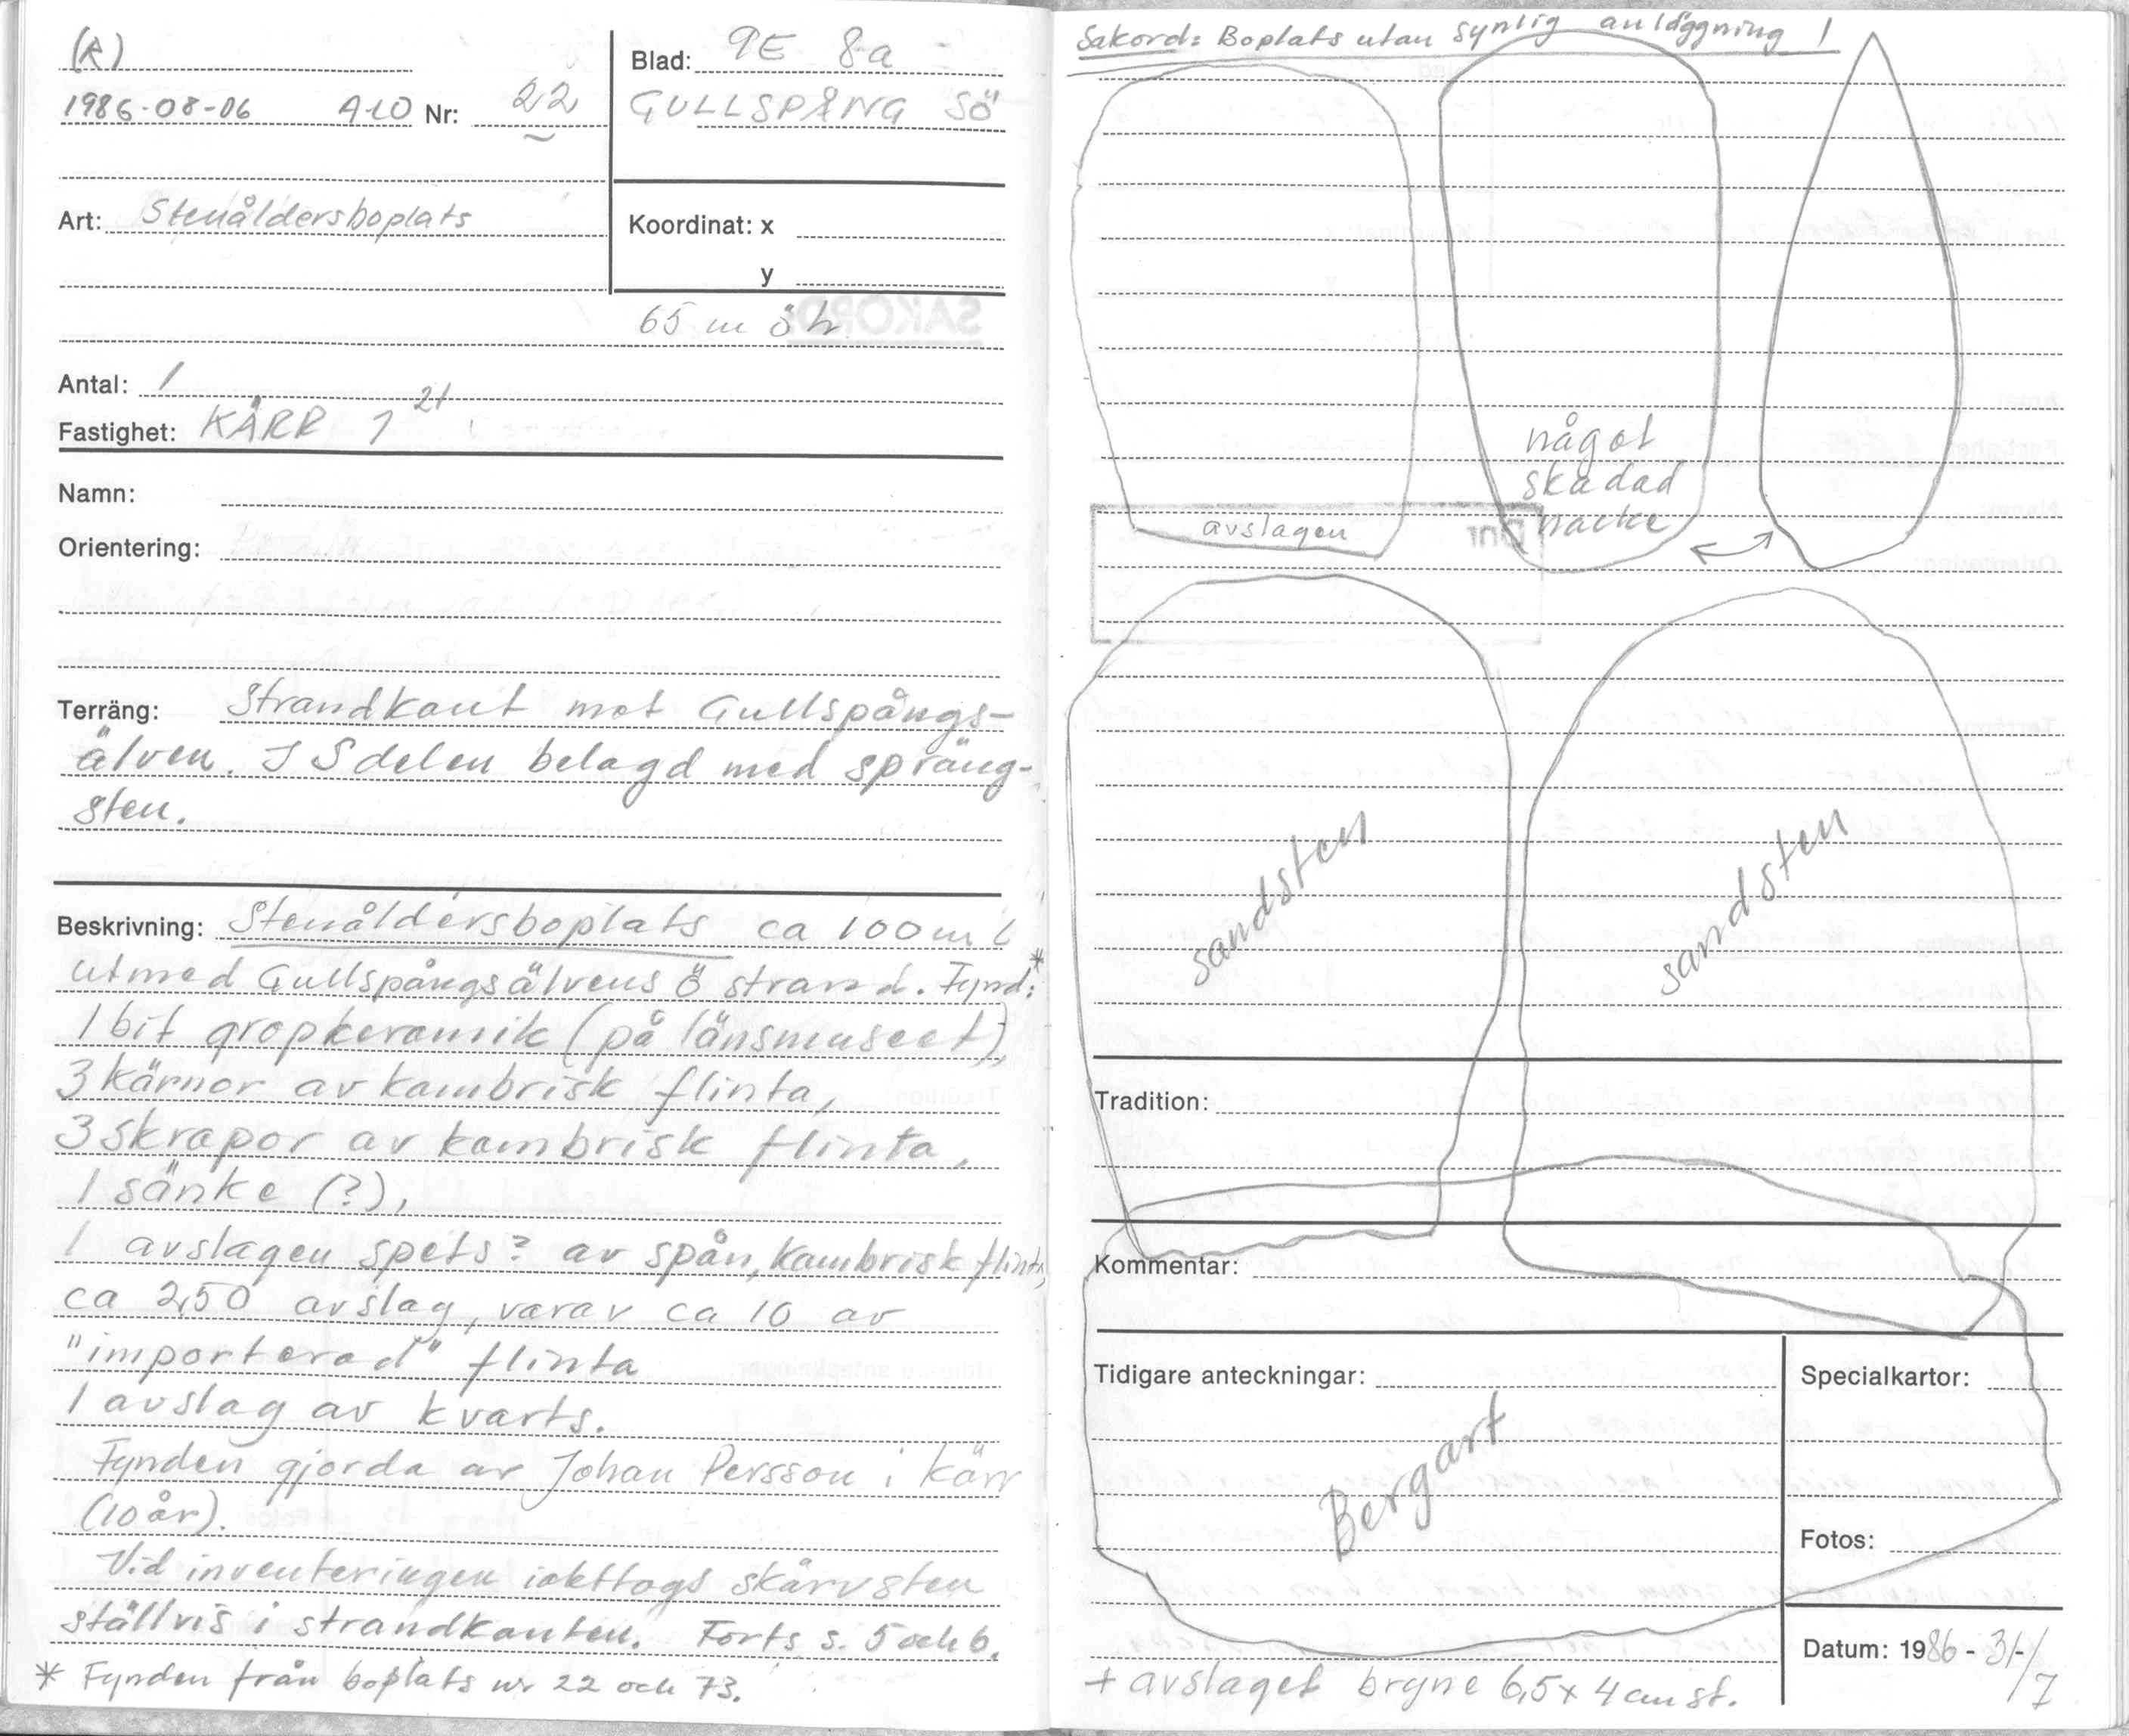 (R)
1986-08-06 ALO Nr: 22
Blad: 9E 8a
GULLSPÅNG SÖ
Art: Stenåldersboplats
Koordinat: x
y
65 m ö h
Antal: 1
Fastighet: KÄRR 1 21
Namn:
Orientering:
Terräng: Strandkant mot Gullspångs-
älven. I S delen belagd med spräng-
sten.
Beskrivning: Stenåldersboplats ca 100 m l
utmed Gullspångsälvens ö strand. Fynd:*
1 bit gropkeramik (på länsmuseet),
3 kärnor av kambrisk flinta,
3 skrapor av kambrisk flinta,
1 sänke (?),
1 avslagen spets? av spån, kambrisk flinta,
ca 250 avslag, varav ca 10 av
"importerad" flinta
1 avslag av kvarts.
Fynden gjorda av Johan Persson i Kärr
(10 år).
Vid inventeringen iakttogs skärvsten
ställvis i strandkanten. Forts s. 5 och 6.
* Fynden från boplats nr 22 och 73.
Sakord: Boplats utan synlig anläggning 1
något
skadad
nacke
avslagen
sandsten
sandsten
Tradition:
Kommentar:
Tidigare anteckningar:
Specialkartor:
Bergart
Fotos:
Datum: 1986 - 31/7
+ avslaget bryne 6,5 x 4 cm st.